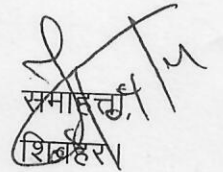 समाहर्त्ता,
शिवहर।